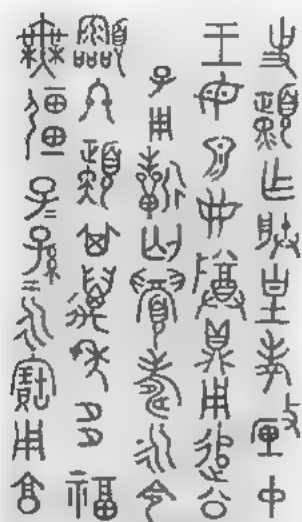 史乍朕皇考釐中
王母母尊鼎用追
用眉壽永令
冬其萬年多福
無疆子=孫=永寶用享